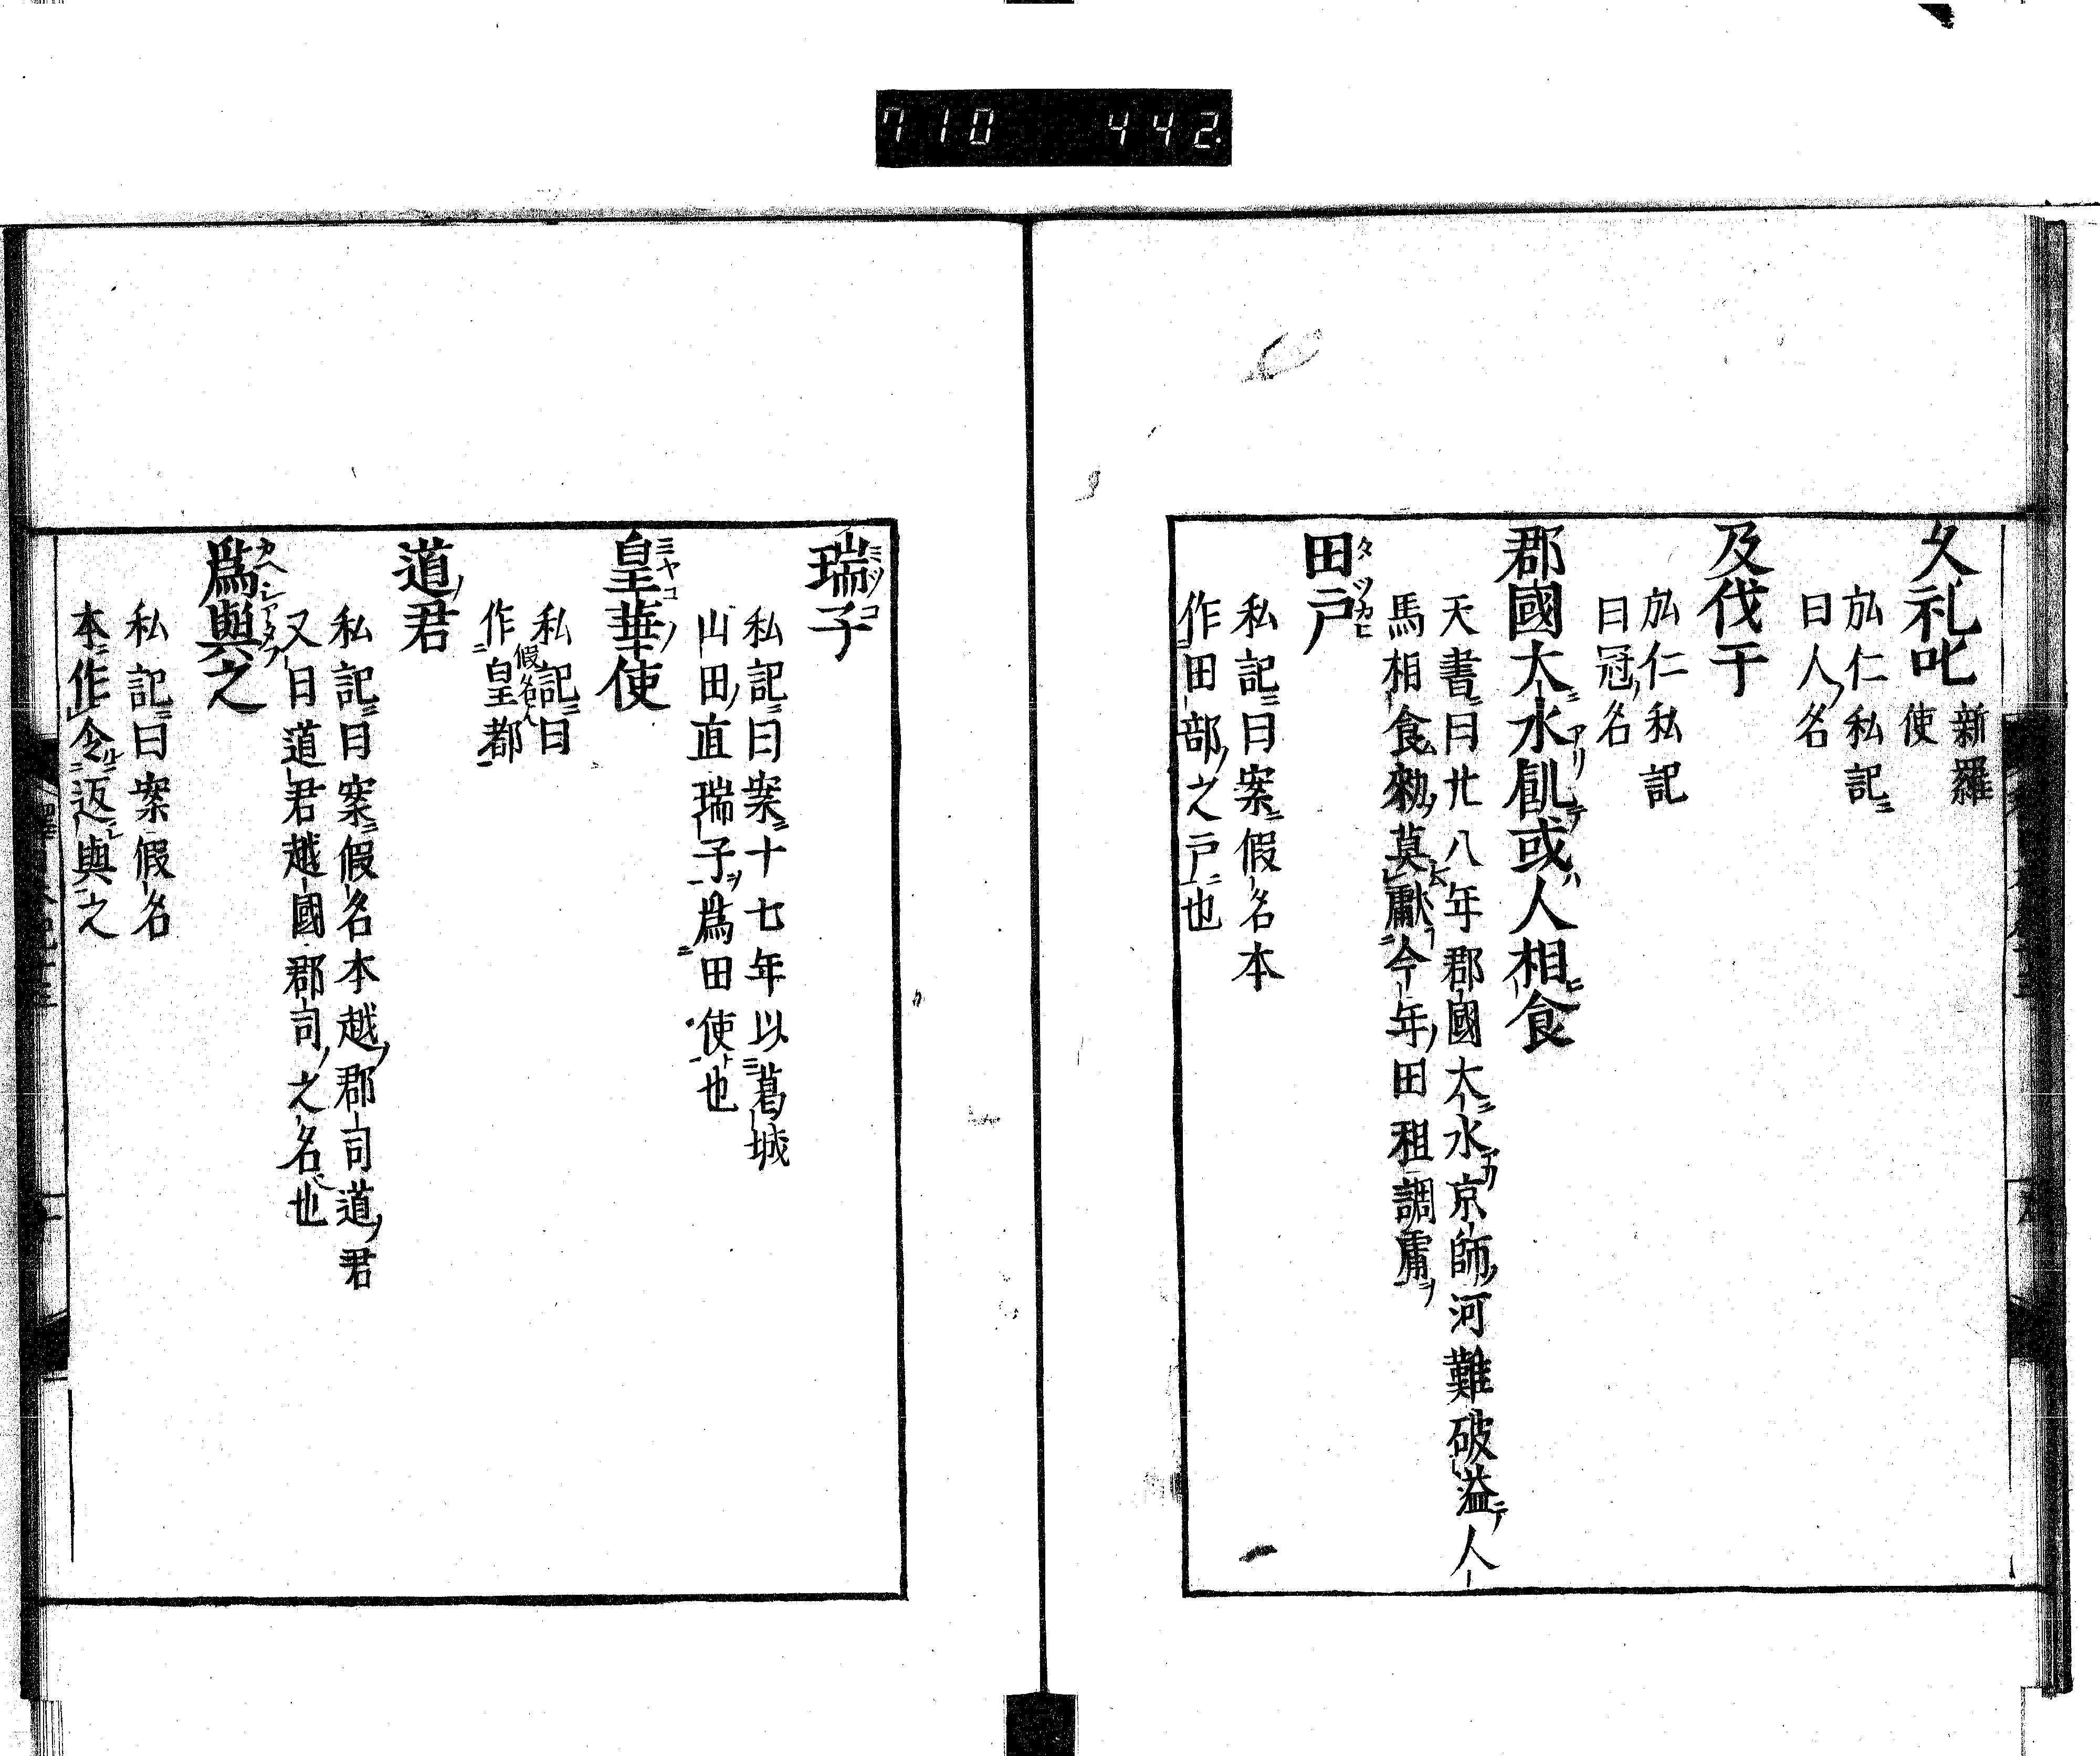 710 442.
久礼叱 新羅
使
㢤仁私記
曰人名
及伐干
㢤仁私記
曰冠名
郡國大水飢或人相食
天書曰廿八年郡國大水京師河難破溢人
馬相食勑莫獻今年田租調庸
田戸
私記曰案假名本
作田部之戸也
瑞子
私記曰案十七年以葛城
山田直瑞子為田使也
皇華使
私記曰
假名
作皇都
道君
私記曰案假名本越郡司道君
又曰道君越國郡司之名也
爲與之
私記曰案假名
本作令返與之